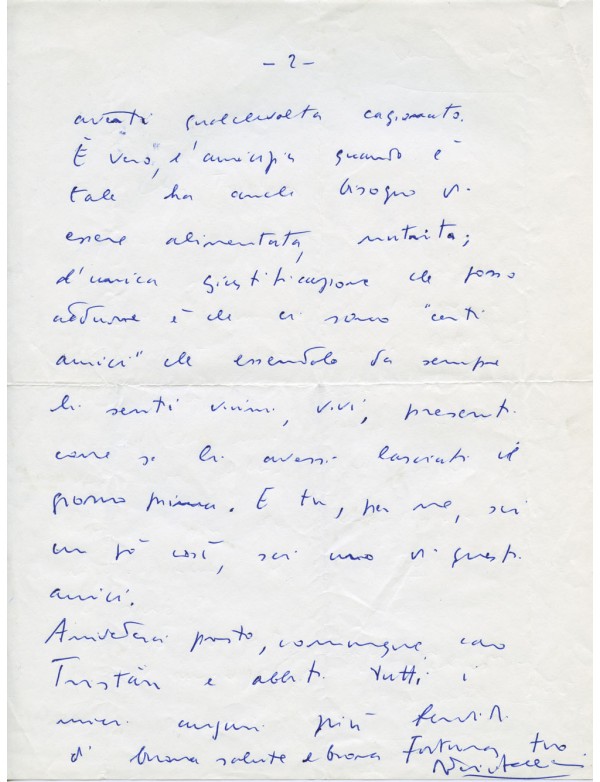 - 2 -
averti qualchevolta cagionato.
È vero, l'amicizia quando è
tale ha anche bisogno di
essere alimentata, nutrita;
l'unica giustificazione che posso
addurre è che ci sono "certi
amici" che essendolo da sempre
li senti vicini, vivi, presenti
come se li avessi lasciati il
giorno prima. E tu, per me, sei
un pò così, sei uno di questi
amici.
Arrivederci presto, comunque, caro
Tristán e abbiti tutti i
miei auguri più fervidi
di buona salute e buona fortuna, tuo